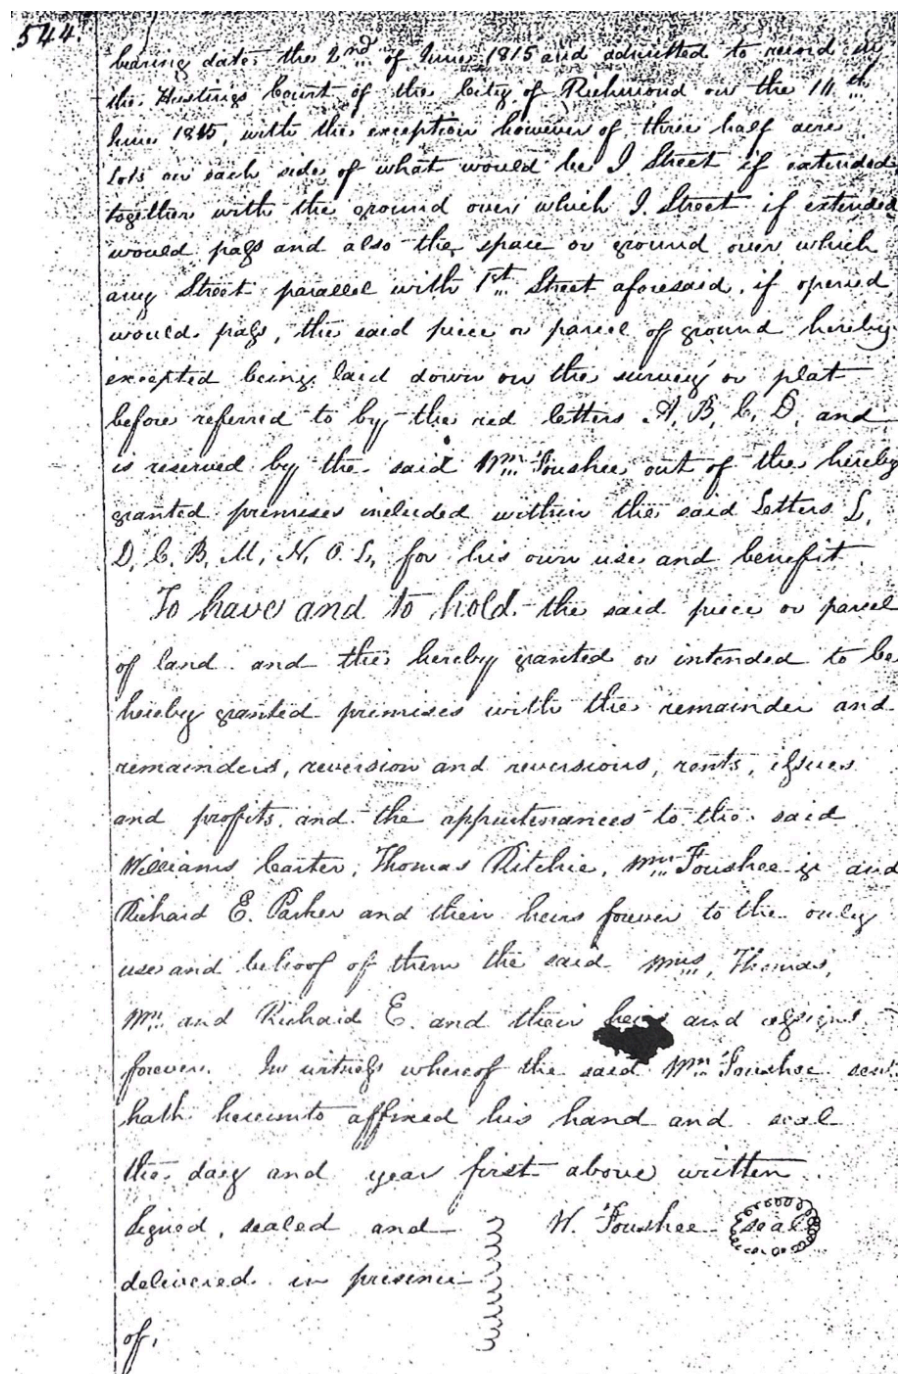 544.
bearing date the 2nd of June 1815 and admitted to record in
the Hustings Court of the City of Richmond on the 14th
June 1815, with the exception however of three half acre
Lots on each side of what would be I Street if extended
together with the ground over which I Street if extended
would pass and also the space or ground over which
any Street parallel with 1st Street aforesaid, if opened,
would pass, the said piece or parcel of ground hereby
excepted being laid down on the survey or plat
before referred to by the red letters A, B, C, D, and
is reserved by the said Wm. Foushee out of the hereby
granted premises included within the said Letters L,
D, C, B, M, N, O, L, for his own use and benefit.
To have and to hold the said piece or parcel
of land and the hereby granted or intended to be
hereby granted premises with the remainder and
remainders, reversion and reversions, rents, issues
and profits and the appurtenances to the said
Williams Carter, Thomas Ritchie, Wm. Foushee jr and
Richard E. Parker and their heirs forever to the only
use and behoof of them the said Wms, Thomas,
Wm. and Richard E. and their heirs and assigns
forever. In witness whereof the said Wm. Foushee sen.
hath hereunto affixed his hand and seal
the day and year first above written.
Signed, sealed and W. Foushee seal
delivered in presence
of,